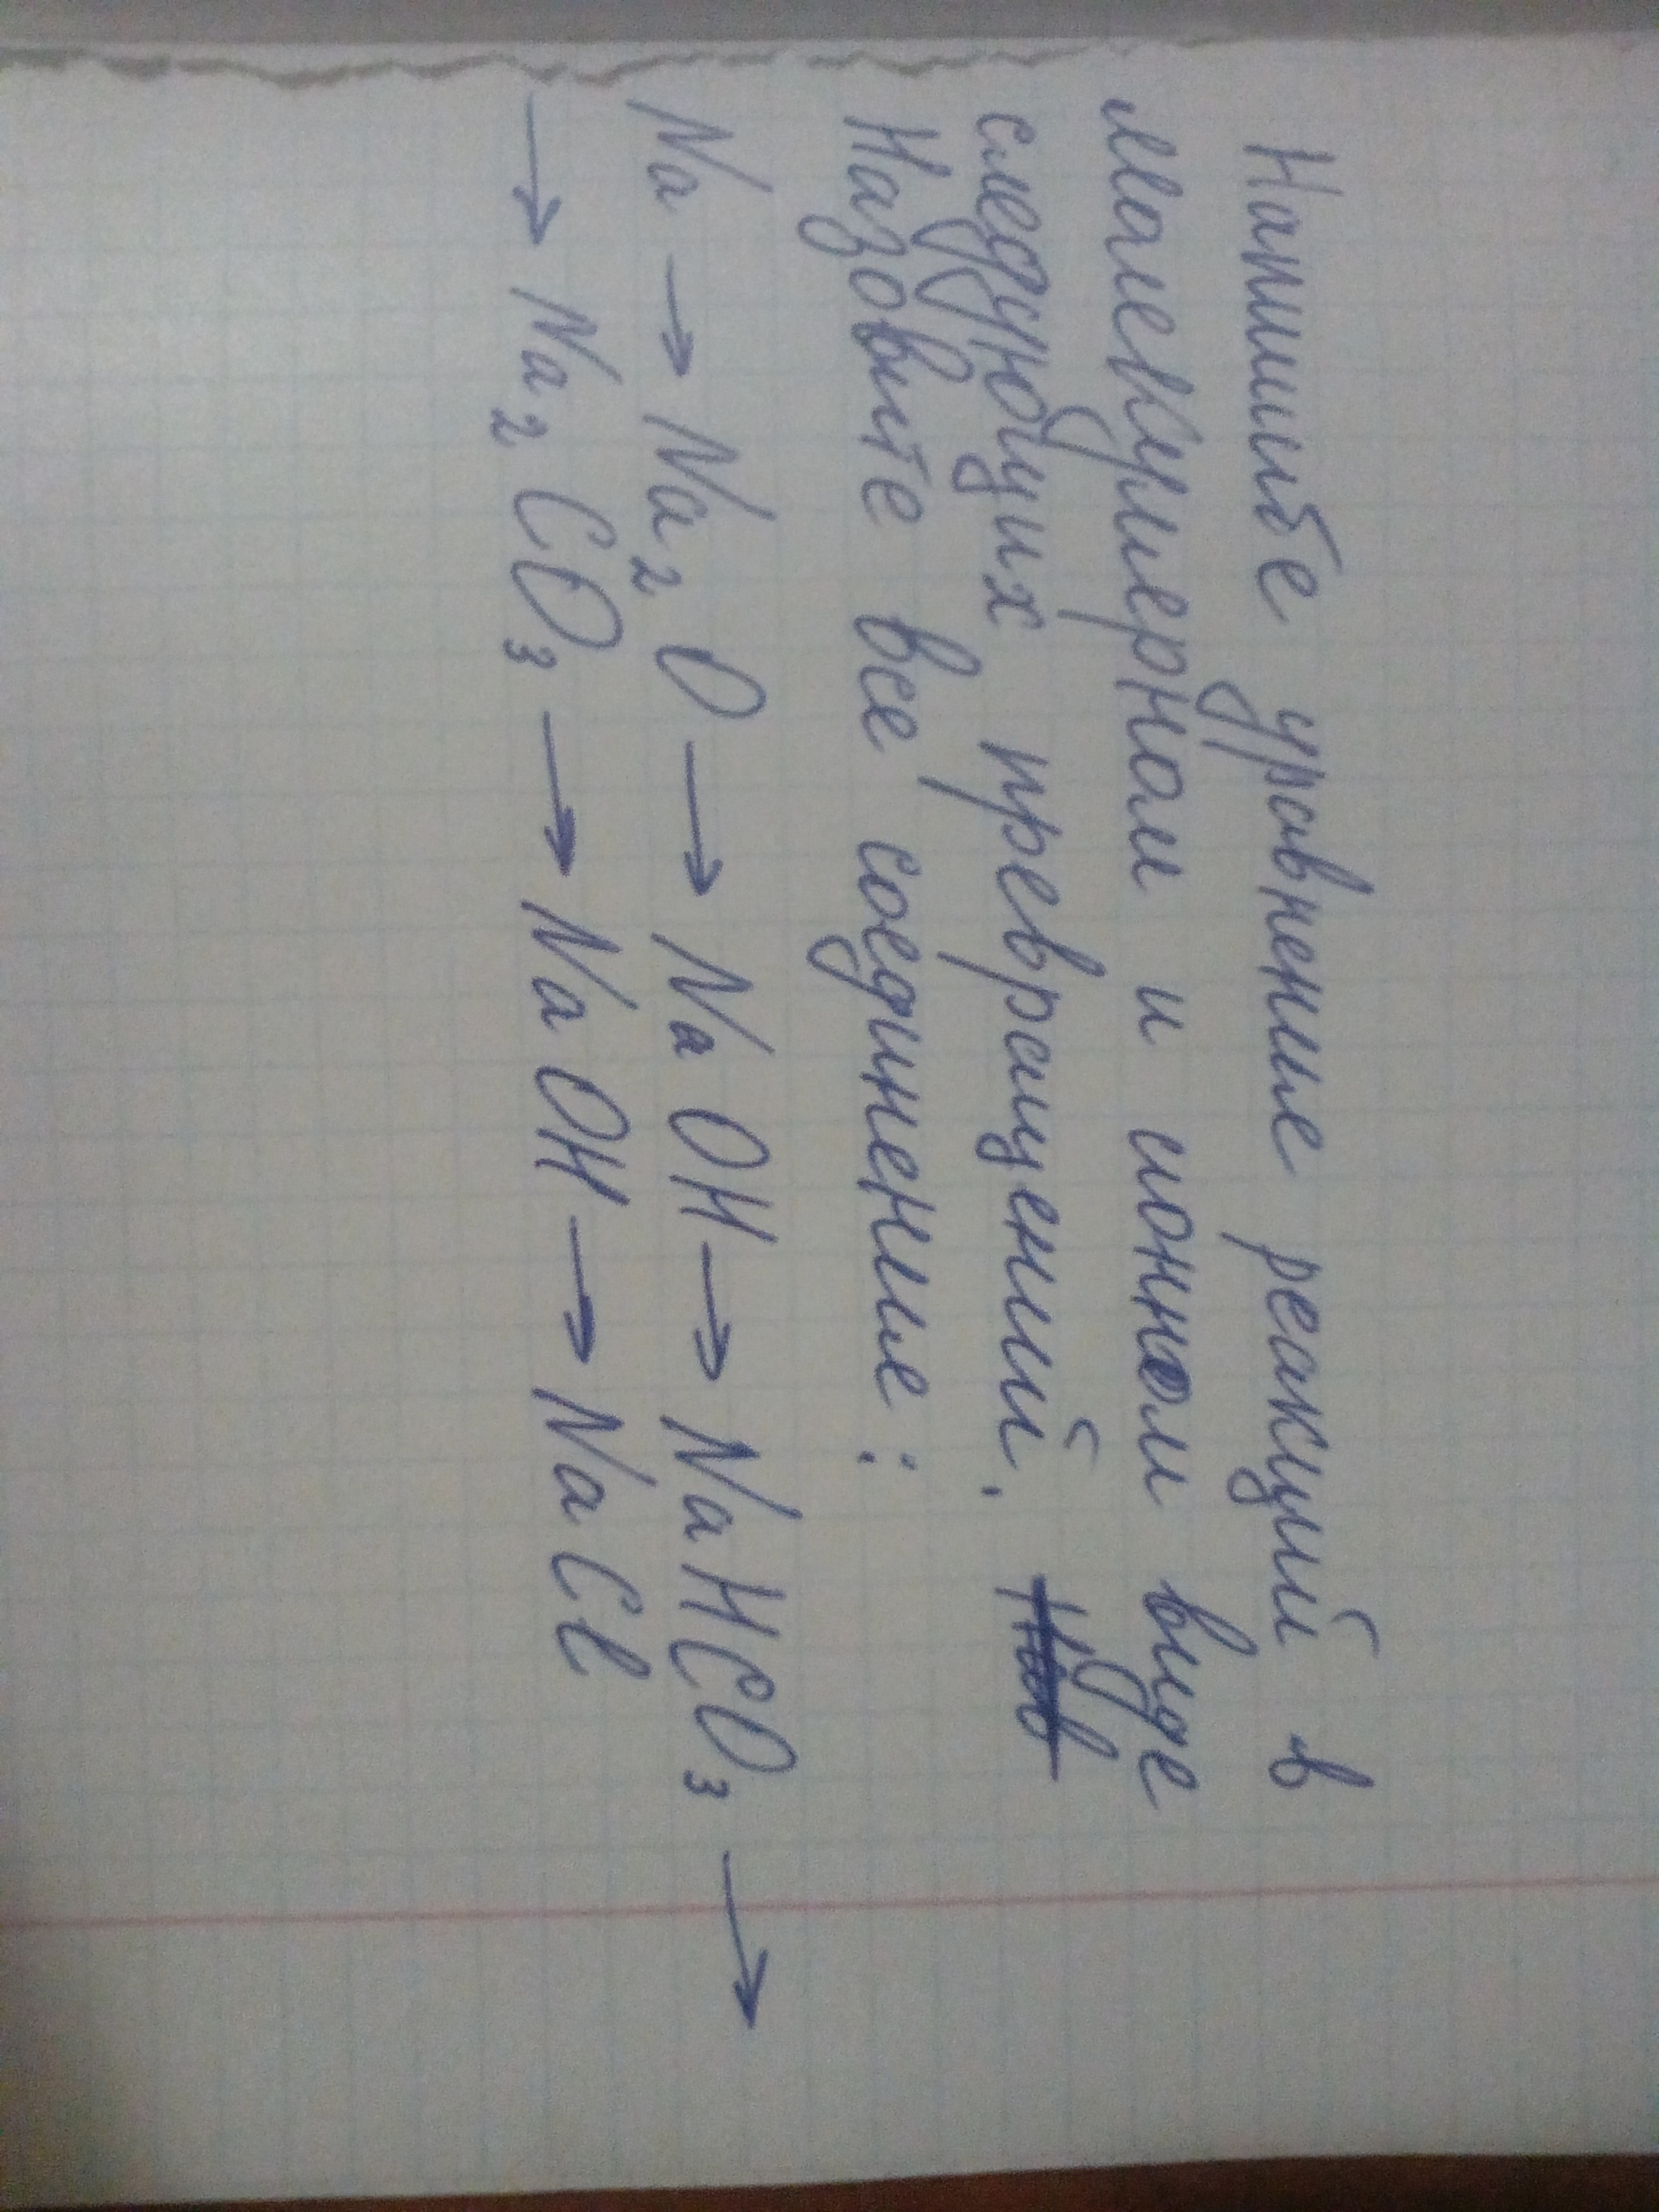 Напишибе уравнение реакций в
молекулярном и ионном виде
следующих превращений. Наз
Назовите все соединение:
Na → Na₂O → NaOH → NaHCO₃ →
→ Na₂CO₃ → NaOH → NaCl